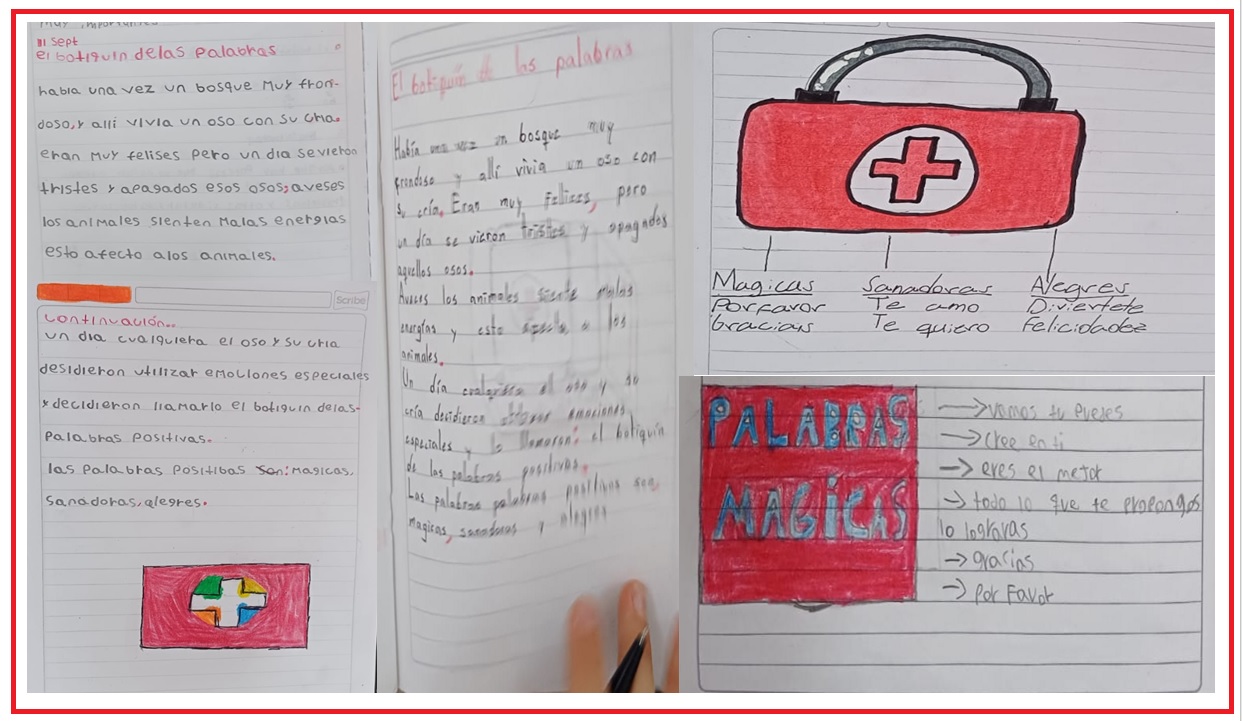 muy importantes
11 sept
el botiquin delas palabras
habia una vez un bosque muy fron-
doso, y alli vivia un oso con su cria.
eran muy felises pero un dia se vieron
tristes y apagados esos osos; aveses
los animales sienten malas energias
esto afecto alos animales.
Scribe
continuación..
un dia cualquiera el oso y su cria
desidieron utilizar emociones especiales
y decidieron llamarlo el botiquin delas-
palabras positivas.
las palabras positibas son: magicas,
sanadoras, alegres.
El botiquín de las palabras
Había una vez un bosque muy
frondoso y allí vivia un oso con
su cría. Eran muy felices, pero
un día se vieron tristes y apagados
aquellos osos.
Aveces los animales siente malas
energías y esto afecta a los
animales.
Un día cualquiera el oso y su
cría decidieron utilizar emociones
especiales y lo llamaron: el botiquín
de las palabras positivas.
Las palabras palabras positivas son,
magicas, sanadoras y alegres
Magicas Sanadoras Alegres
Porfavor Te amo Diviertete
Gracias Te quiero Felicidadez
PALABRAS
MAGICAS
→vamos tu puedes
→cree en ti
→ eres el mejor
→ todo lo que te propongas
lo lograras
→gracias
→ por Favor